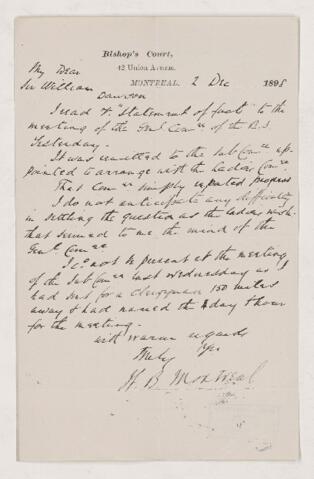 Bishop's Court,
42 Union Avenue.
MONTREAL. 2 Dec 1898
My Dear
Sir William
Dawson
I read yr "Statement of fact" to the
meeting of the Genl Comee of the B.S.
Yesterday.
It was remitted to the Sub Comee ap-
pointed to arrange with the Ladies Comee.
That Comee simply reported progress
I do not anticipate any difficulty
in settling the question as the ladies wish
that seemed to me the mind of the
Genl Comee
I cd not be present at the meeting
of the Sub Comee last Wednesday as I
had sent for a Clergyman 150 miles
away & had named the day & hour
for the meeting.
with warm regards
Yrs
truly
W. B. Montreal